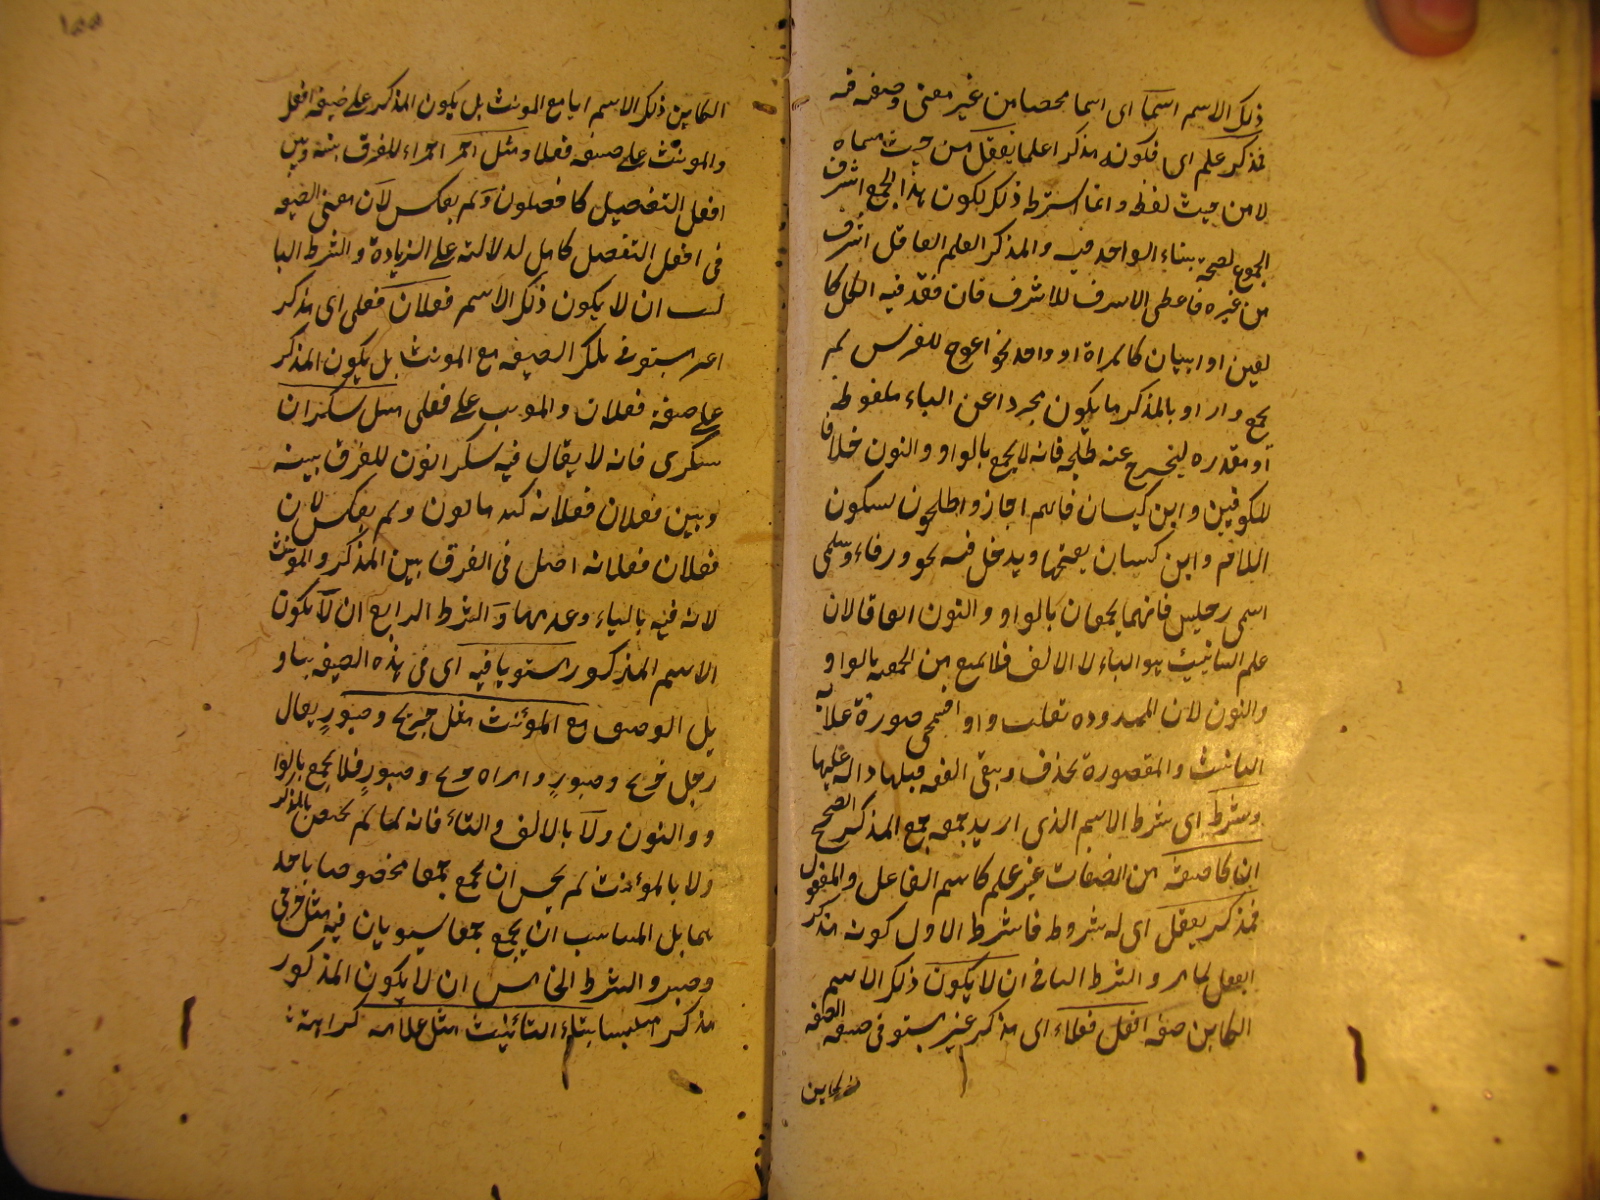 ذلك الاسم اسما اى اسما محضا من غير معنى وصفه فيه
فمذكر علم اى فكونه مذكرا علما يعقل من حيث مسماه
لا من حيث لفظه وانما اشترط ذلك لكون هذا الجمع اشرف
الجموع لصحة بناء الواحد فيه والمذكر العلم العاقل اشرف
من غيره فاعطى الاشرف للاشرف فان فقد فيه الكل كا
لعين او اثنان كالمراة او واحد نحو اعوج للفرس لم
يجمع واراد بالمذكر ما يكون مجردا عن التاء ملفوظة
او مقدرة ليخرج عنه طلحة فانه لا يجمع بالواو والنون خلافا
للكوفيين وابن كيسان فانهم اجازوا طلحون بسكون
اللام وابن كيسان يفتحها ويدخل فيه نحو ورقاء وسلمى
اسمى رجلين فانهما يجمعان بالواو والنون اتفاقا لان
علم التانيث هو التاء لا الالف فلا يمنع من الجمعية بالواو
والنون لان الممدودة تقلب واوا فتمحى صورة علامة
التانيث والمقصورة تحذف ويبقى الفتحة قبلها دالة عليها
وشرطه اى شرط الاسم الذى اريد جمعه جمع المذكر الصحيح
ان كان صفة من الصفات غير علم كاسم الفاعل والمفعول
فمذكر يعقل اى له شروط فالشرط الاول كونه مذكر
ايعقل لما مر والشرط الثانى ان لا يكون ذلك الاسم
الكاين صفة افعل فعلاء اى مذكر غير مستو فى صيغة الصفة
الكاين
١٥٥
الكاين ذلك الاسم اياها مع المونث بل يكون المذكر على صيغة افعل
والمونث على صيغة فعلاء مثل احمر حمراء للفرق بينه وبين
افعل التفضيل كافضلون ولم يعكس لان معنى الصيغة
فى افعل التفضيل كامل لدلالته على الزيادة والشرط الثا
لث ان لا يكون ذلك الاسم فعلان فعلى اى مذكر
غير مستو فى تلك الصيغة مع المونث بل يكون المذكر
على صيغة فعلان والمونث على فعلى مثل سكران
سكرى فانه لا يقال فيه سكرانون للفرق بينه
وبين فعلان فعلانة كندمانون ولم يعكس لان
فعلان فعلانة اصل فى الفرق بين المذكر والمونث
لانه فيه بالتاء وعدمها والشرط الرابع ان لا يكون
الاسم المذكور مستويا فيه اى فى هذه الصيغة بتاو
يل الوصف مع المؤنث مثل جريح وصبور يقال
رجل جريح وصبور وامراة جريح وصبور فلا يجمع بالوا
و والنون ولا بالالف والتاء فانه لما لم يختص بالمذكر
ولا بالمؤنث لم يحسن ان يجمع جمعا مخصوصا باحد
هما بل المناسب ان يجمع جمعا يستويان فيه مثل جرحى
وصبر والشرط الخامس ان لا يكون المذكور
مذكرا ملتبسا بتاء التأنيث مثل علامة كراهة